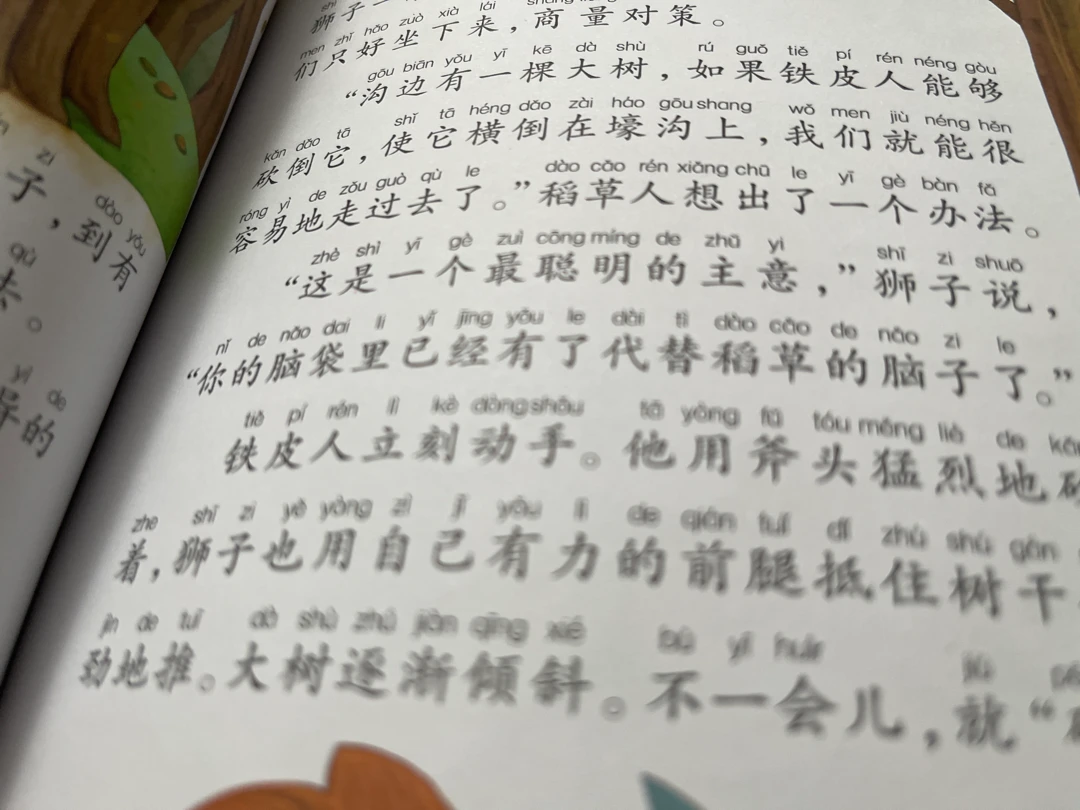 zi
子，
dào yǒu
到有
qù
去。
yì de
异的
shī
狮子一
men zhǐ hǎo zuò xià lái
们只好坐下来，商量对策。
gōu biān yǒu yī kē dà shù rú guǒ tiě pí rén néng gòu
“沟边有一棵大树，如果铁皮人能够
kǎn dǎo tā shǐ tā héng dǎo zài háo gōu shang wǒ men jiù néng hěn
砍倒它，使它横倒在壕沟上，我们就能很
róng yì de zǒu guò qù le dào cǎo rén xiǎng chū le yī gè bàn fǎ
容易地走过去了。”稻草人想出了一个办法。
zhè shì yī gè zuì cōng míng de zhǔ yi shī zi shuō
“这是一个最聪明的主意，”狮子说，
nǐ de nǎo dai li yǐ jīng yǒu le dài tì dào cǎo de nǎo zi le
“你的脑袋里已经有了代替稻草的脑子了。”
tiě pí rén lì kè dòng shǒu tā yòng fǔ tóu měng liè de kǎn
铁皮人立刻动手。他用斧头猛烈地砍
zhe shī zi yě yòng zì jǐ yǒu lì de qián tuǐ dǐ zhù shù gàn
着，狮子也用自己有力的前腿抵住树干
jìn de tuī dà shù zhú jiàn qīng xié bù yī huìr jiù
劲地推。大树逐渐倾斜。不一会儿，就“